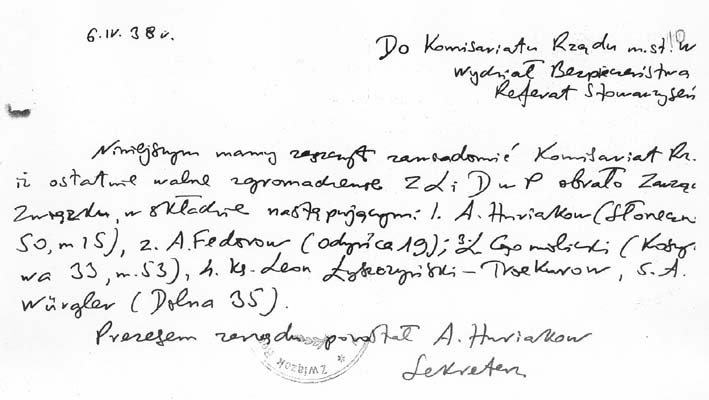 6.IV.38 r.
10
Do Komisariatu Rządu m.st. W
Wydział Bezpieczeństwa
Referat Stowarzyszeń
Niniejszym mamy zaszczyt zawiadomić Komisariat Rz.
iż ostatnie walne zgromadzenie Z L i D w P obrało Zarząd
Związku, w składzie następującym: 1. A. Huriakow (Słoneczn
50, m 15), 2. A. Fedorow (Odyńca 19); 3. L (Kosy
wa 33, m. 53), 4. ks. Leon Łyszczyński – Troekurow, 5. A.
Würgler (Dolna 35).
Prezesem zarządu pozostał A. Huriakow
Sekretarz
Związek